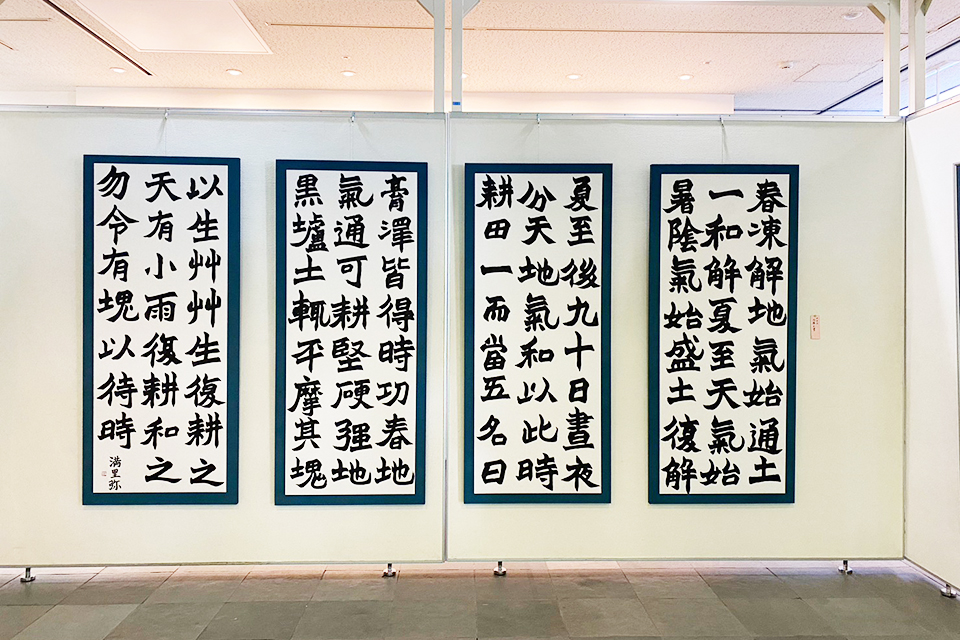 春凍解地氣始通土
一和解夏至天氣始
暑陰氣始盛土復解
夏至後九十日晝夜
分天地氣和以此時
耕田一而當五名曰
膏澤皆得時功春地
氣通可耕堅硬强地
黒壚土輒平摩其塊
以生艸艸生復耕之
天有小雨復耕和之
勿令有塊以待時
満里弥